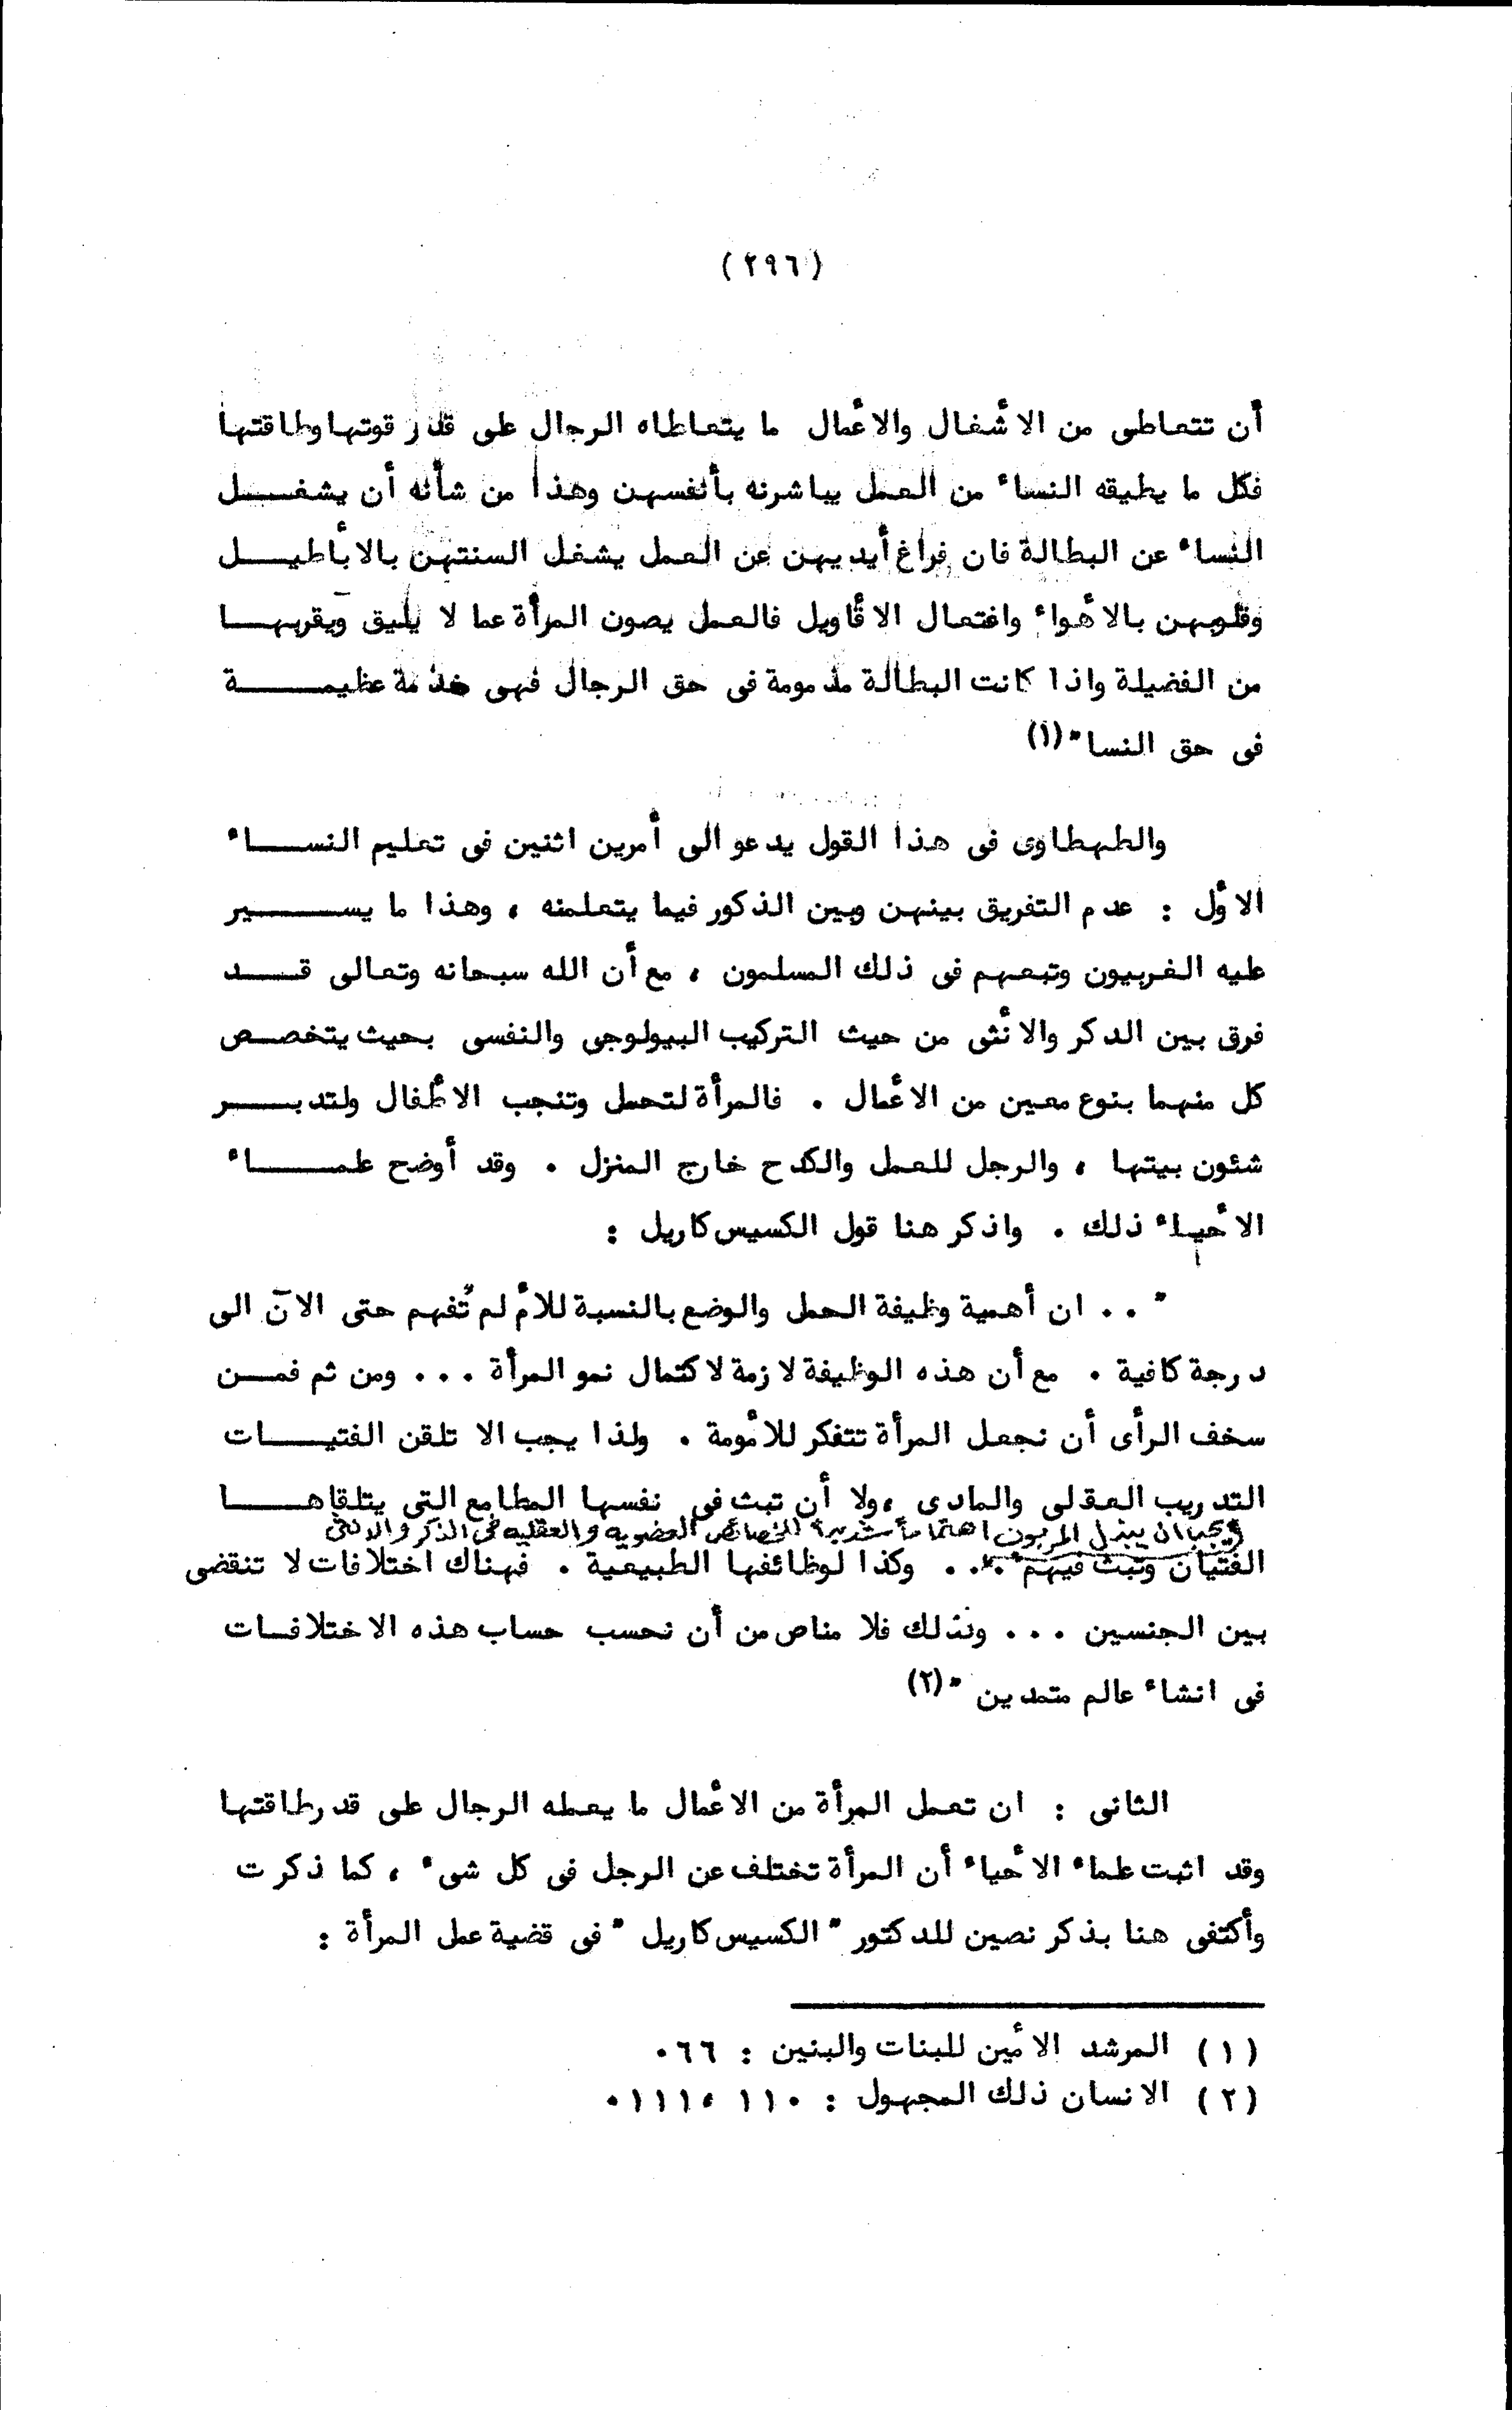 (٢٩٦)
أن تتعاطى من الأشغال والأعمال ما يتعاطاه الرجال على قدر قوتها وطاقتها
فكل ما يطيقه النساء من العمل يباشرنه بأنفسهن وهذا من شأنه أن يشغل
النساء عن البطالة فان فراغ أيديهن عن العمل يشغل السنتهن بالأباطيل
وقلوبهن بالأهواء وافتعال الأقاويل فالعمل يصون المرأة عما لا يليق ويقربها
من الفضيلة واذا كانت البطالة مذمومة فى حق الرجال فهى مذمة عظيمة
فى حق النسا" (١)
والطهطاوى فى هذا القول يدعو الى أمرين اثنين فى تعليم النساء
الأول : عدم التفريق بينهن وبين الذكور فيما يتعلمنه ، وهذا ما يسير
عليه الغربيون وتبعهم فى ذلك المسلمون ، مع أن الله سبحانه وتعالى قد
فرق بين الدكر والأنثى من حيث التركيب البيولوجى والنفسى بحيث يتخصص
كل منهما بنوع معين من الأعمال . فالمرأة لتحمل وتنجب الأطفال ولتدبر
شئون بيتها ، والرجل للعمل والكدح خارج المنزل . وقد أوضح علماء
الأحياء ذلك . واذكر هنا قول الكسيس كاريل :
" . . ان أهمية وظيفة الحمل والوضع بالنسبة للأم لم تُفهم حتى الآن الى
درجة كافية . مع أن هذه الوظيفة لازمة لاكتمال نمو المرأة . . . ومن ثم فمن
سخف الرأى أن نجعل المرأة تتفكر للأمومة . ولذا يجب الا تلقن الفتيات
التدريب العقلى والمادى ، ولا أن تبث فى نفسها المطامع التى يتلقاها
ويجب ان يبذل المربون اهتماما شديدا للخصائص العضويه والعقليه فى الذكر والانثى
الفتيان وتبث فيهم . . . وكذا لوظائفها الطبيعية . فهناك اختلافات لا تنقضى
بين الجنسين . . . ولذلك فلا مناص من أن نحسب حساب هذه الاختلافات
فى انشاء عالم متمدين " (٢)
الثانى : ان تعمل المرأة من الأعمال ما يعمله الرجال على قدر طاقتها
وقد اثبت علماء الأحياء أن المرأة تختلف عن الرجل فى كل شىء ، كما ذكرت
وأكتفى هنا بذكر نصين للدكتور " الكسيس كاريل " فى قضية عمل المرأة :
(١) المرشد الأمين للبنات والبنين : ٦٦ .
(٢) الانسان ذلك المجهول : ١١٠ ، ١١١ .